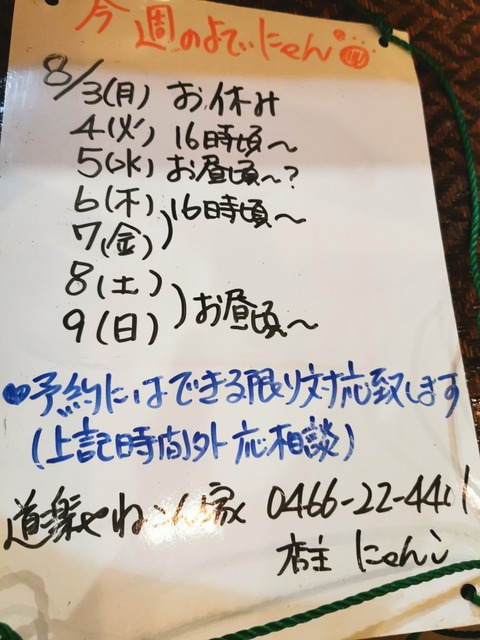 今週のよていにゃん
8/3(月) お休み
4(火) 16時頃〜
5(水) お昼頃〜?
6(木)
7(金) ) 16時頃〜
8(土)
9(日) ) お昼頃〜
予約にはできる限り対応致します
(上記時間外応相談)
道楽やねこん家 0466-22-4401
店主 にゃんこ